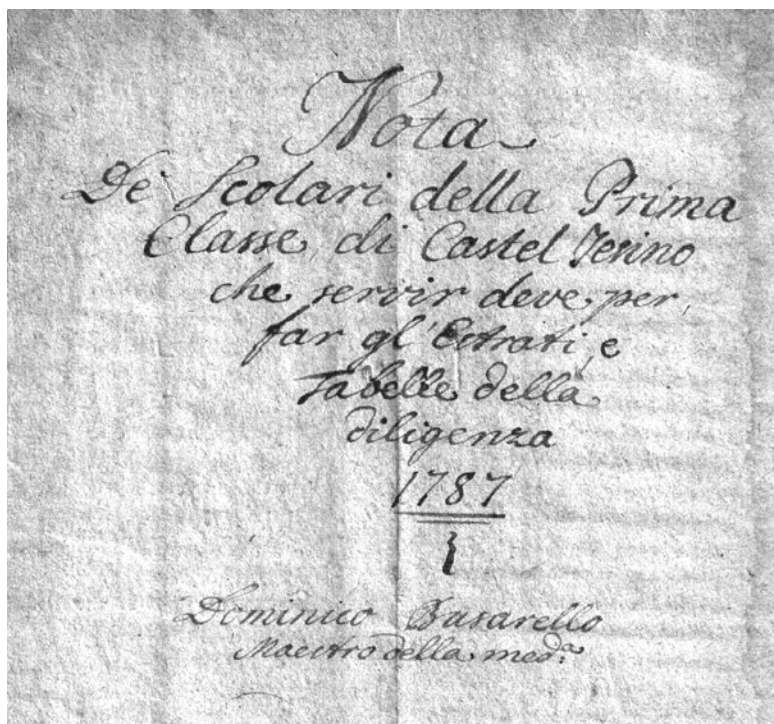 Nota
De' Scolari della Prima
Classe, di Castel Tesino
che servir deve per
far gl'Estratti, e
Tabelle della
diligenza
1787
Dominico
Maestro della med.ª